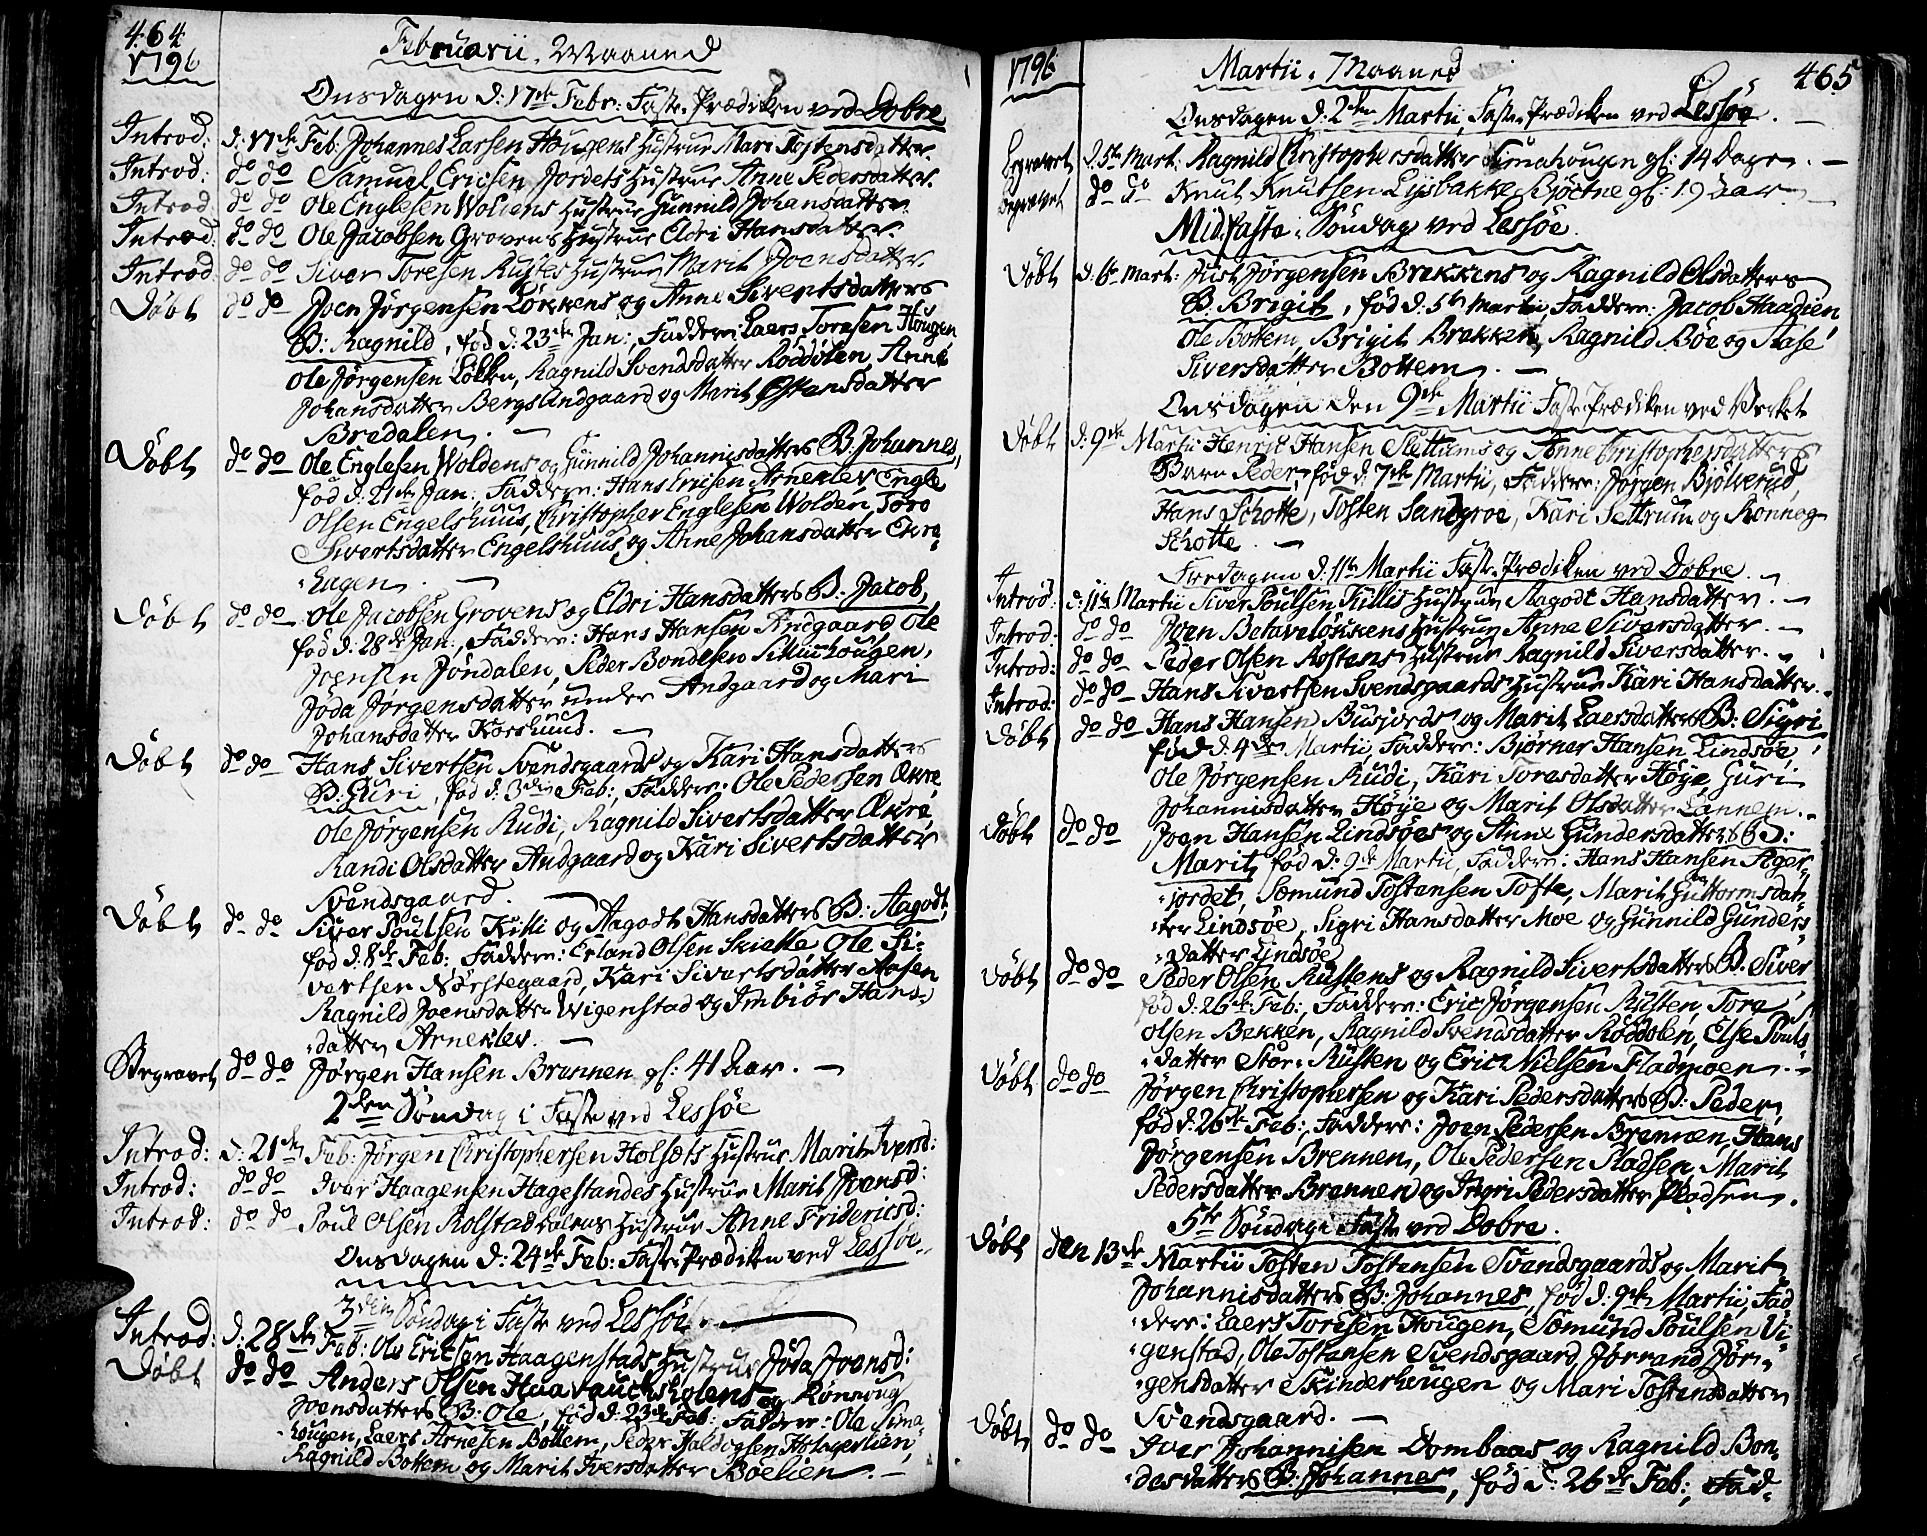 464
1796
Februarii. Maaned
Onsdagen d: 17de Febr: Faste-Prædiken ved Dobre
Introd: d: 17de Feb: Johannes Larsen Hougens Hustrue Mari Tostensdatter.
Introd: do do Samuel Ericsen Jordets Hustrue Anne Pedersdatter.
Introd: do do Ole Englesen Woldens Hustrue Gunnild Johansdatter.
Introd: do do Ole Jacobsen Grovens Hustrue Eldri Hansdatter.
Introd: do do Siver Toresen Rustes Hustrue Marit Joensdatter.
Döbt do do Joen Jørgensen Løkkens og Anne Sivertsdatters
B: Ragnild, föd d: 23de Jan:, Faddere: Laers Toresen Hougen
Ole Jørgensen Løkken, Ragnild Svendsdatter Röddölen, Anne
Johansdatter Bergs Andgaard og Marit Østensdatter
Bredalen. —
Döbt do do Ole Englesen Woldens og Gunnild Johannisdatters B: Johannes,
föd d: 21de Jan:, Faddere: Hans Ericsen Arneklev, Engle
Olsen Engelshuus, Christopher Englesen Wolden, Toro
Sivertsdatter Engelshuus, og Anne Johansdatter
Hagen. —
Döbt do do Ole Jacobsen Grovens og Eldri Hansdatters B: Jacob,
föd d: 28de Jan:, Faddere: Hans Hansen Andgaard, Ole
Joensen Jöndalen, Peder Bondesen
Jöda Jørgensdatter under Andgaard og Mari
Johansdatter Korshuus. —
Döbt do do Hans Sivertsen Svendsgaards og Kari Hansdatters
B: Guri, föd d: 3die Feb:, Faddere: Ole Pedersen Øvre,
Ole Jørgensen Rudi, Ragnild Sivertsdatter Øvre,
Randi Olsdatter Andgaard og Kari Sivertsdatter
Svendsgaard. —
Döbt do do Siver Poulsen Killi og Aagodt Hansdatters B: Aagodt,
föd d: 8de Feb: Faddere: Erland Olsen Skielle, Ole Si-
vertsen Nörstegaard, Kari Sivertsdatter Aasen
Ragnild Joensdatter Wigenstad og Imbiör Hans-
datter Arneklev. —
Begravet do do Jørgen Hansen Brennen gl: 41 Aar. —
2den Söndag i Faste ved Lessöe
Introd: d: 21de Feb: Jørgen Christophersen Holsets Hustrue Marit Iversd:
Introd: do do Iver Haagensen Hagestandes Hustrue Marit Joensd:
Introd: do do Poul Olsen Rolstad Hustrue Anne Fridericsd:
Onsdagen d: 24de Feb: Faste-Prædiken ved Lessöe.
3die Söndag i Faste ved Lessöe.
Introd: d: 28de Feb: Ole Ericsen Haagenstads Hustrue Jöda Joensd:
Döbt do do Anders Olsen og Rönnoug
Joensdatters B: Ole, föd d: 23de Feb: Faddere: Ole Sima-
hougen, Laers Arnesen Bottem, Peder
Ragnild Bottem og Marit Iversdatter Böelien. —
1796
Martii. Maaned
465
Onsdagen d: 2den Martii, Faste-Prædiken ved Lessöe. —
Begravet d: 5te Mart: Ragnild Christophersdatter Simahougen gl: 14 Dage. —
Begravet do do Knut Knutsen Lysbakke Björtne gl: 19 Aar. —
Midfaste-Söndag ved Lessöe.
Döbt d: 6te Mart: Just Jørgensen Brekkens og Ragnild Olsdatters
B: Brigit, föd d: 5te Martii, Faddere: Jacob Haadien
Ole Bottem, Brigit Brekken, Ragnild Böe og Aase
Siversdatter Bottem. —
Onsdagen den 9de Martii Faste-Prædiken ved Verket
Döbt d: 9de Martii Henric Hansen Slettums og Anne Christophersdatters
Barn Peder, föd d: 7de Martii, Faddere: Jörgen Bjölverud,
Hans Schotte, Tosten Sandgroe, Kari Settrum og Ronnog
Schotte. —
Fredagen d: 11te Martii Faste-Prædiken ved Dobre. —
Introd: d: 11te Martii Siver Poulsen Killis Hustrue Aagodt Hansdatter. —
Introd: do do Joen Betaveløkkens Hustrue Anne Siversdatter. —
Introd: do do Peder Olsen Rustens Hustrue Ragnild Siversdatter. —
Introd: do do Hans Sivertsen Svendsgaards Hustrue Kari Hansdatter. —
Döbt do do Hans Hansen Busjords og Marit Laersdatters B: Sigri
föd d: 4de Martii, Faddere: Bjørner Hansen Lindsöe,
Ole Jørgensen Rudi, Kari Toresdatter Höye, Guri
Johannisdatter Höye og Marit Olsdatter Lannem. —
Döbt do do Joen Hansen Lindsöes og Anne Gundersdatters B:
Marit, föd d: 9de Martii, Faddere: Hans Hansen Ager-
jordet, Semund Tostensen Tofte, Marit Guttormsdat-
ter Lindsöe, Sigri Hansdatter Moe og Gunnild Gunders-
datter Lindsöe
Döbt do do Peder Olsen Rustens og Ragnild Sivertsdatters B: Siver
föd d: 26de Feb:, Faddere: Eric Jørgensen Rusten, Tore
Olsen Bekken, Ragnild Svendsdatter Röddölen, Else Pouls-
datter Stor-Rusten og Eric Nielsen Fladmoen. —
Döbt do do Jørgen Christophersen og Kari Pedersdatters B: Peder,
föd d: 26de Feb:, Faddere: Joen Pedersen Brennen, Hans
Jørgensen Brennen, Ole Pedersen Pladsen, Marit
Pedersdatter Brennen og Ingri Pedersdatter Pladsen.
5te Söndag i Faste ved Dobre.
Döbt den 13de Martii Tosten Tostensen Svendsgaards og Marit
Johannisdatters B: Johannes, föd d: 9de Martii, Fad-
dere: Laers Toresen Hougen, Semund Poulsen Vi-
genstad, Ole Tostensen Svendsgaard, Jorrand Jør-
gensdatter Skinderhougen og Mari Tostensdatter
Svendsgaard. —
Döbt do do Iver Johannisen Dombaas og Ragnild Bon-
desdatters B: Johannes, föd d: 26de Feb:, Fad-